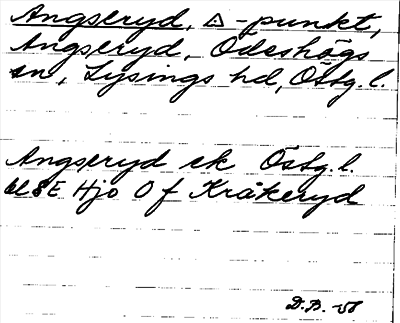 Angseryd, △-punkt,
Angseryd, Ödeshögs
sn, Lysings hd, Östg.l.
Angseryd ek Östg.l.
8E Hjo O f Kråkeryd
D.B.